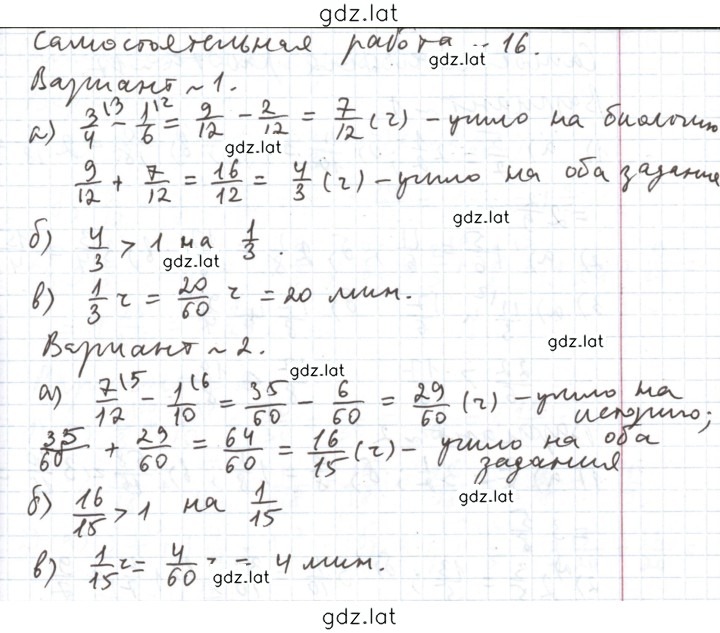 gdz.lat
Самостоятельная работа ~ 16.
gdz.lat
Вариант ~ 1.
а) 3/4 (3 - 1/6 (2 = 9/12 - 2/12 = 7/12 (ч) - ушло на биологию
gdz.lat
9/12 + 7/12 = 16/12 = 4/3 (ч) - ушло на оба задания
gdz.lat
б) 4/3 > 1 на 1/3.
gdz.lat
в) 1/3 ч = 20/60 ч = 20 мин.
Вариант ~ 2.
gdz.lat
gdz.lat
а) 7/12 (5 - 1/10 (6 = 35/60 - 6/60 = 29/60 (ч) - ушло на
историю;
35/60 + 29/60 = 64/60 = 16/15 (ч) - ушло на оба
задания
gdz.lat
б) 16/15 > 1 на 1/15
в) 1/15 ч = 4/60 ч = 4 мин.
gdz.lat
gdz.lat